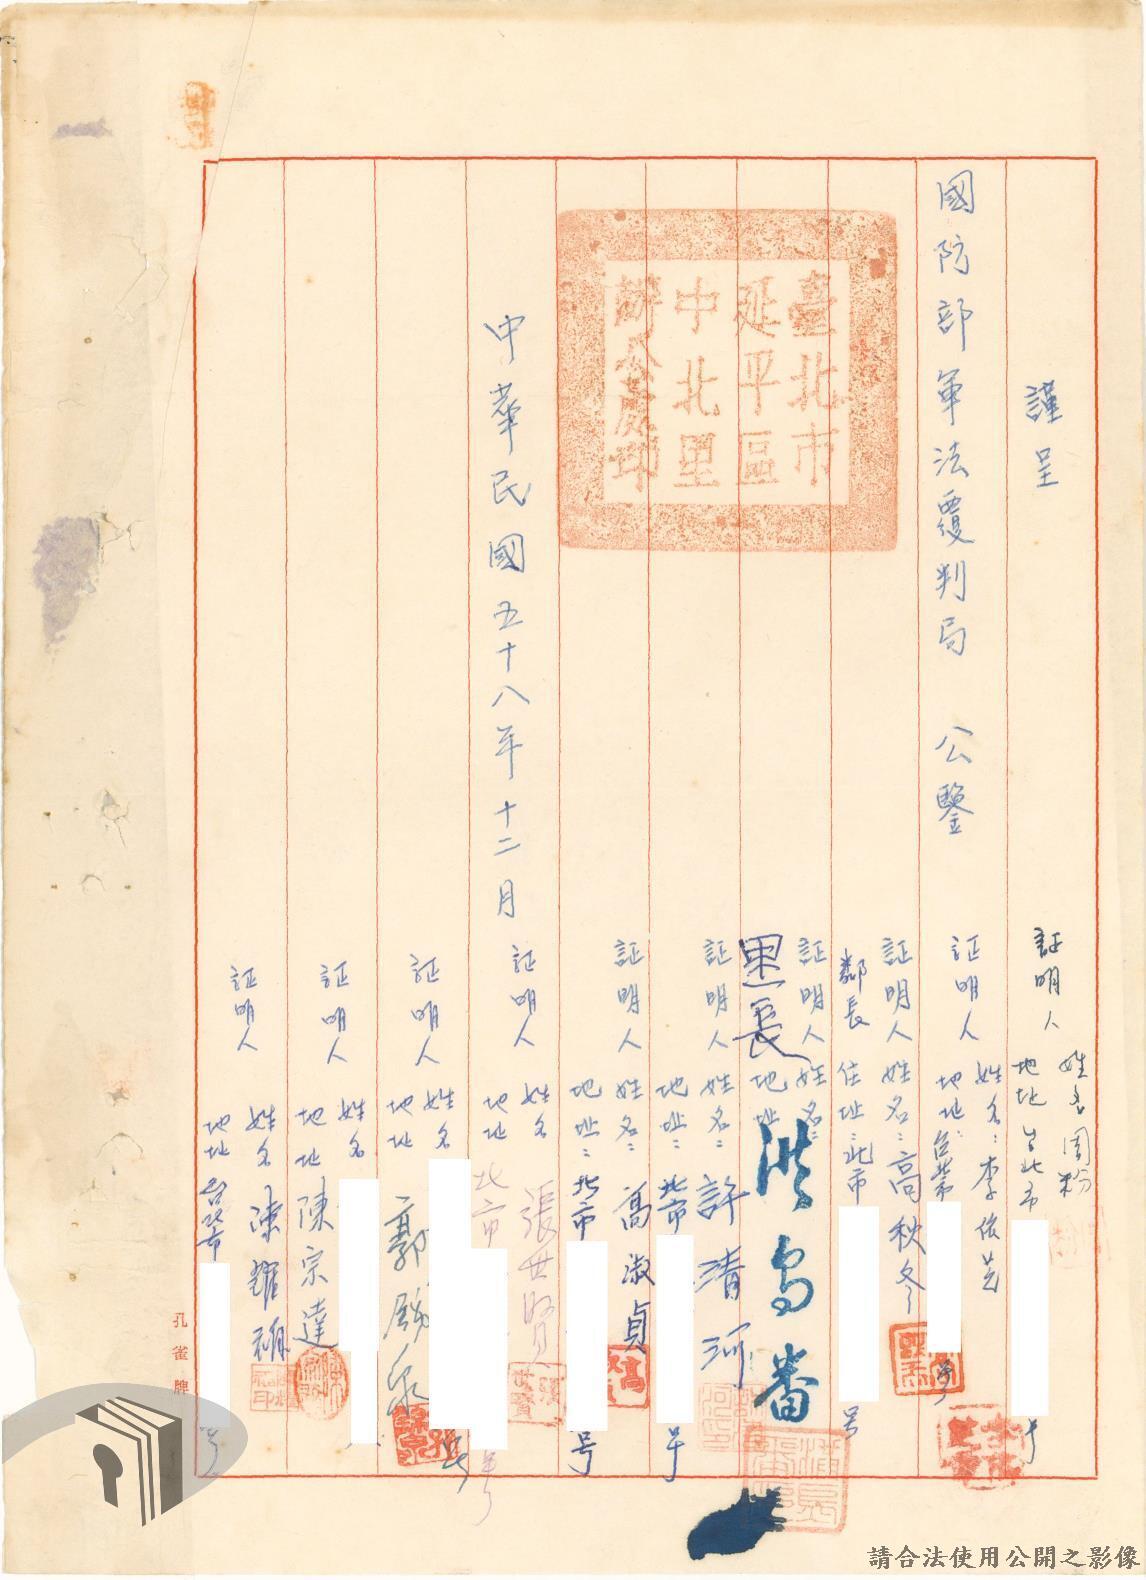 謹呈
國防部軍法覆判局 公鑒
臺北市
延平區
中北里
辦公處印
中華民國五十八年十二月
証明人 姓名 周粉
地址 台北市 号
証明人 姓名：李依芝
地址：台北市
証明人 姓名：高秋冬
鄰長 住址：北市 号
証明人 姓名：
里長 地址：
洪烏番
証明人 姓名：許清河
地址：北市 号
証明人 姓名：高淑貞
地址：北市 号
証明人 姓名 張世賢
地址 北市 号
証明人 姓名
地址 郭錦泉
証明人 姓名
地址 陳宗達
証明人 姓名 陳耀禎
地址 台北市 号
孔雀牌
請合法使用公開之影像